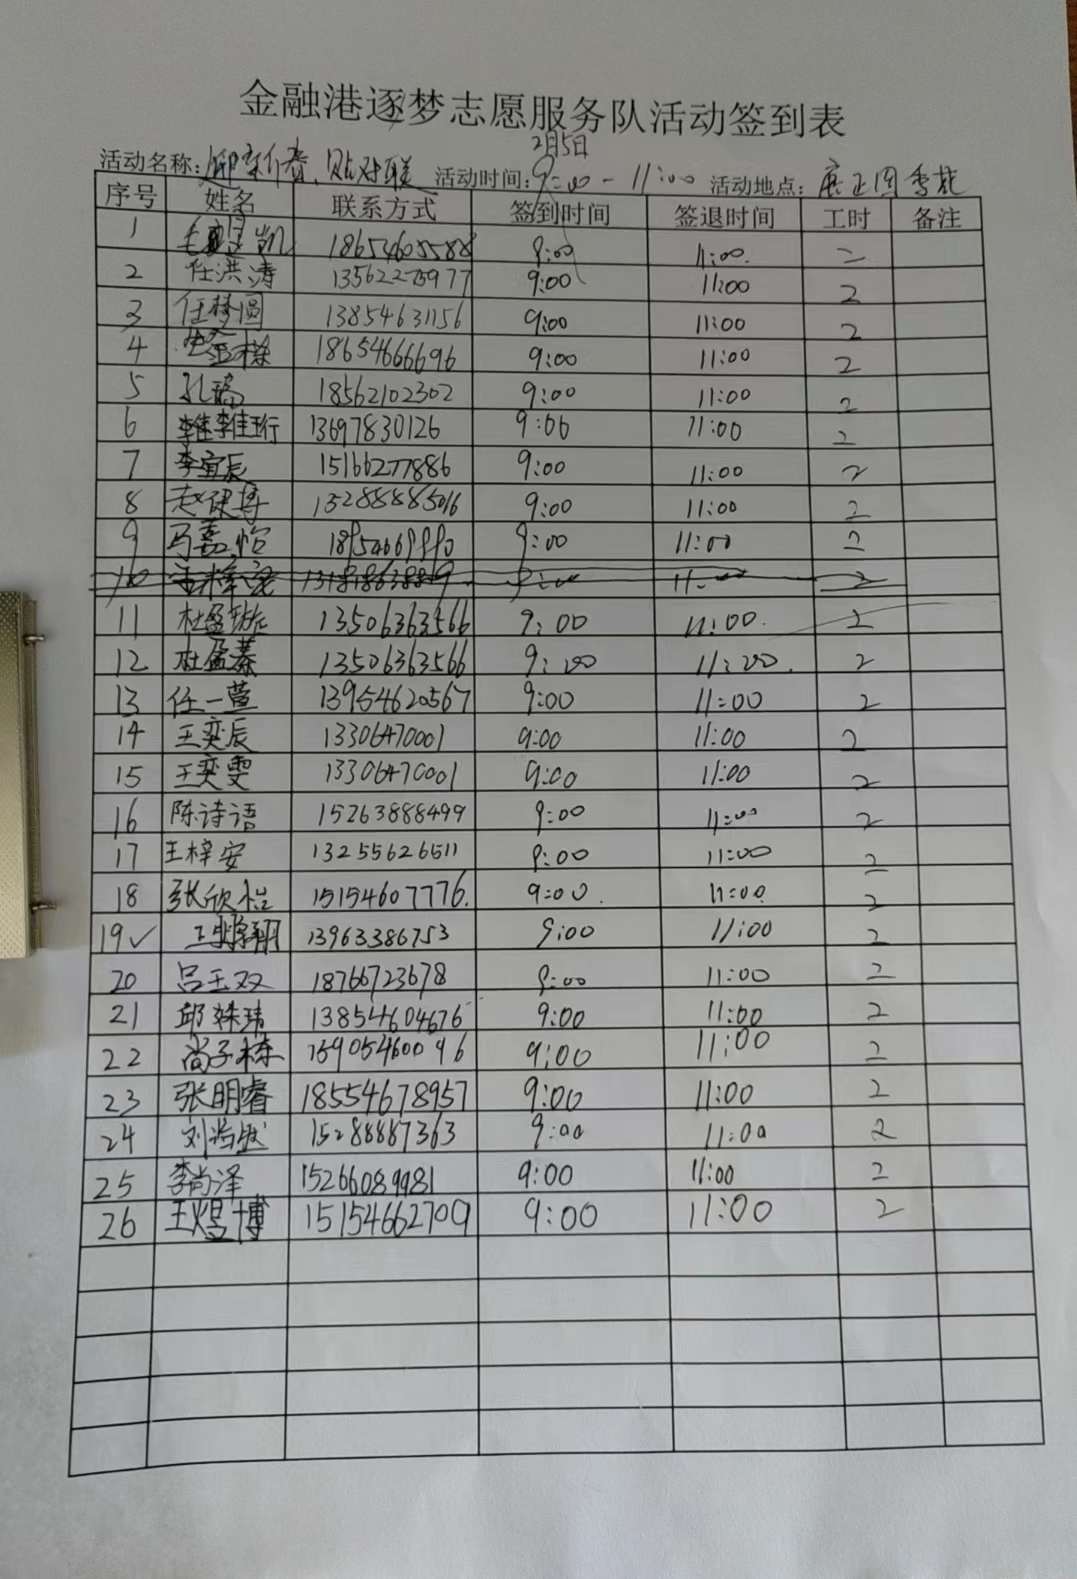 金融港逐梦志愿服务队活动签到表
2月5日
活动名称：迎新春、贴对联 活动时间：9:00-11:00 活动地点：康正园
序号 姓名 联系方式 签到时间 签退时间 工时 备注
1 凯 18654605588 9:00 11:00. 2
2 任洪涛 13562275977 9:00 11:00 2
3 任梦圆 13854631156 9:00 11:00 2
4 18654666696 9:00 11:00 2
5 孔璐 18562102302 9:00 11:00 2
6 李佳珩 13697830126 9:00 11:00 2
7 李宜辰 15166277886 9:00 11:00 2
8 赵健博 9:00 11:00 2
9 马嘉怡 9:00 11:00 2
10 9:00 11:00 2
11 杜盈 13506363566 9:00 11:00. 2
12 杜盈蓁 13506363566 9:00 11:00. 2
13 任一萱 13954620567 9:00 11:00 2
14 王奕辰 13306470001 9:00 11:00 2
15 王奕雯 13306470001 9:00 11:00 2
16 陈诗语 15263888499 9:00 11:00 2
17 王梓安 13255626511 9:00 11:00 2
18 张欣怡 15154607776. 9:00. 11:00 2
19✓ 翔 13963386753 9:00 11:00 2
20 吕玉双 18766723678 9:00 11:00 2
21 邱姝靖 13854604676 9:00 11:00 2
22 尚子栋 9:00 11:00 2
23 张明睿 18554678957 9:00 11:00 2
24 刘 15288887363 9:00 11:00 2
25 李尚泽 15266089981 9:00 11:00 2
26 王煜博 15154662709 9:00 11:00 2